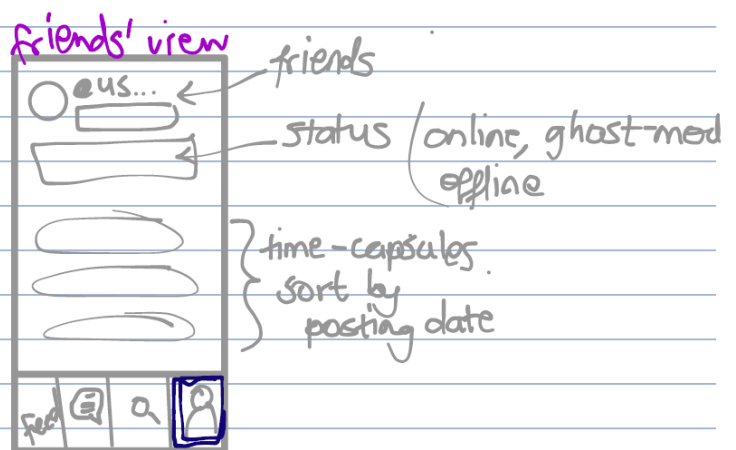 friends' view
eus...
friends
status (online, ghost-mod
offline
time-capsules
sort by
posting date
Feed